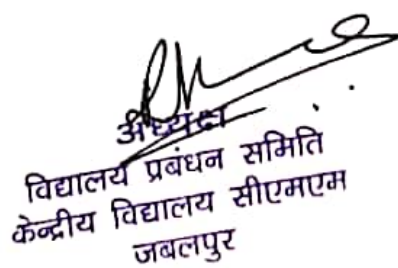 अध्यक्ष
विद्यालय प्रबंधन समिति
केन्द्रीय विद्यालय सीएमएम
जबलपुर